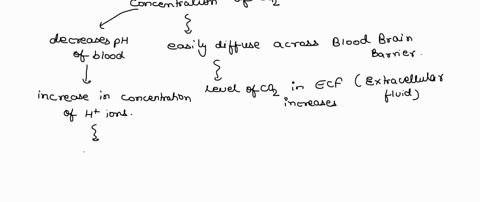 Concentration of CO2
decreases pH
of blood
easily diffuse across Blood Brain
Barrier.
increase in concentration
of H+ ions.
Level of CO2 in ECF (Extracellular
increases fluid)